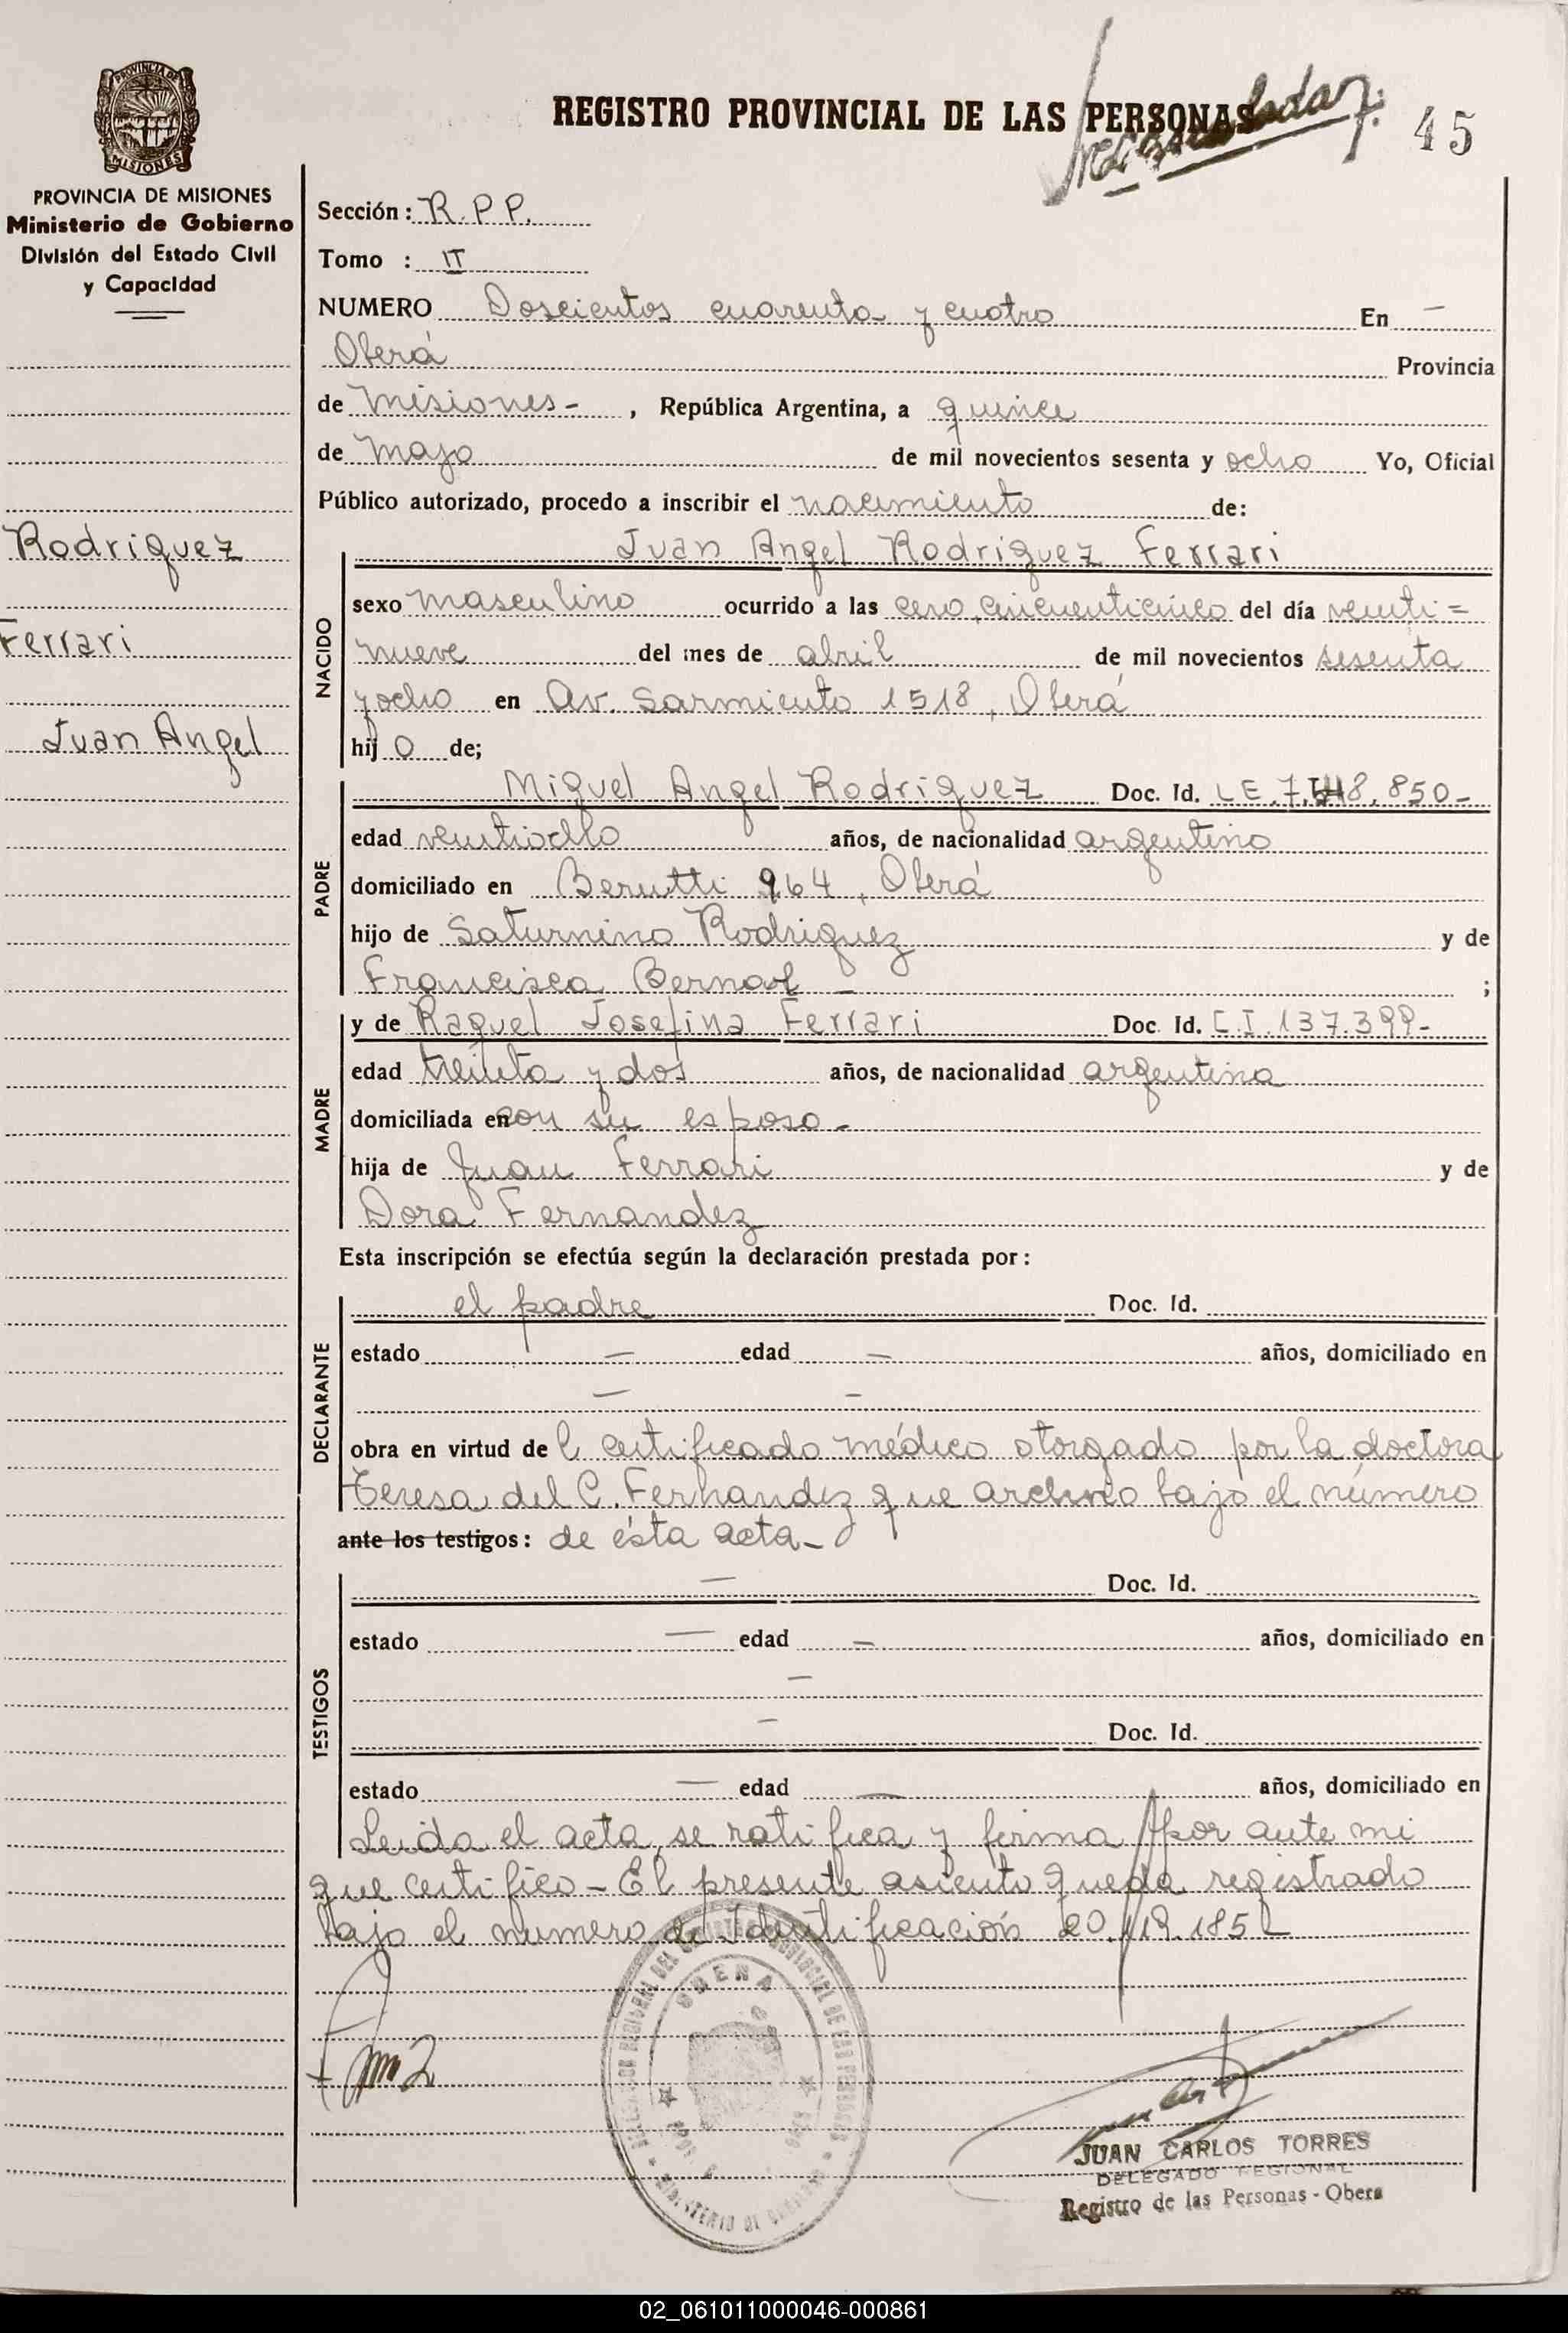 PROVINCIA DE
MISIONES
PROVINCIA DE MISIONES
Ministerio de Gobierno
División del Estado Civil
y Capacidad
Rodriguez
Ferrari
Juan Angel
REGISTRO PROVINCIAL DE LAS PERSONAS
45
Sección: R.P.P.
Tomo : II
NUMERO Doscientos cuarenta y cuatro En —
Oberá Provincia
de Misiones- , República Argentina, a quince
de mayo de mil novecientos sesenta y ocho Yo, Oficial
Público autorizado, procedo a inscribir el nacimiento de:
NACIDO
Juan Angel Rodriguez Ferrari
sexo masculino ocurrido a las cero, cincuenticinco del día veinti=
nueve del mes de abril de mil novecientos sesenta
y ocho en Av. Sarmiento 1518, Oberá
hij o de;
PADRE
Miguel Angel Rodriguez Doc. Id. L E. 850-
edad veintiocho años, de nacionalidad argentino
domiciliado en Berutti 964, Oberá
hijo de Saturnino Rodriguez y de
Francisca Bernal — ;
MADRE
y de Raquel Josefina Ferrari Doc. Id. C.I. 137.399-
edad treinta y dos años, de nacionalidad argentina
domiciliada en con su esposo-
hija de Juan Ferrari y de
Dora Fernandez
Esta inscripción se efectúa según la declaración prestada por:
DECLARANTE
el padre Doc. Id.
estado — edad — años, domiciliado en
— —
obra en virtud de l certificado médico otorgado por la doctora
Teresa del C. Fernandez que archivo bajo el número
ante los testigos: de ésta acta-
TESTIGOS
— Doc. Id.
estado — edad — años, domiciliado en
—
— Doc. Id.
estado — edad — años, domiciliado en
Leida el acta, se ratifica y firma por ante mi
que certifico - El presente asiento queda registrado
bajo el numero de Identificación 20.119.185
OBERA
JUAN CARLOS TORRES
DELEGADO REGIONAL
Registro de las Personas - Obera
02_061011000046-000861